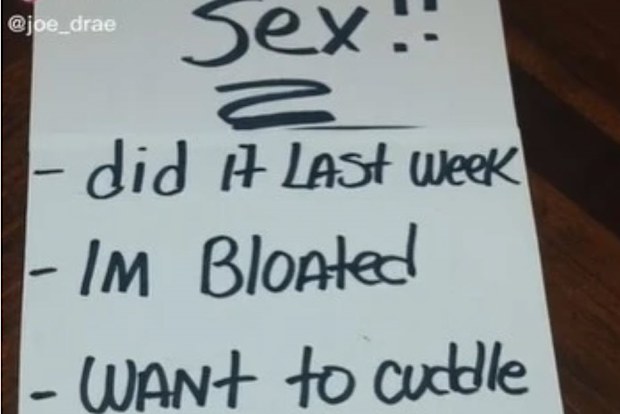 @joe_drae
Sex!!
- did it LAst week
- IM BloAted
- WANt to cuddle